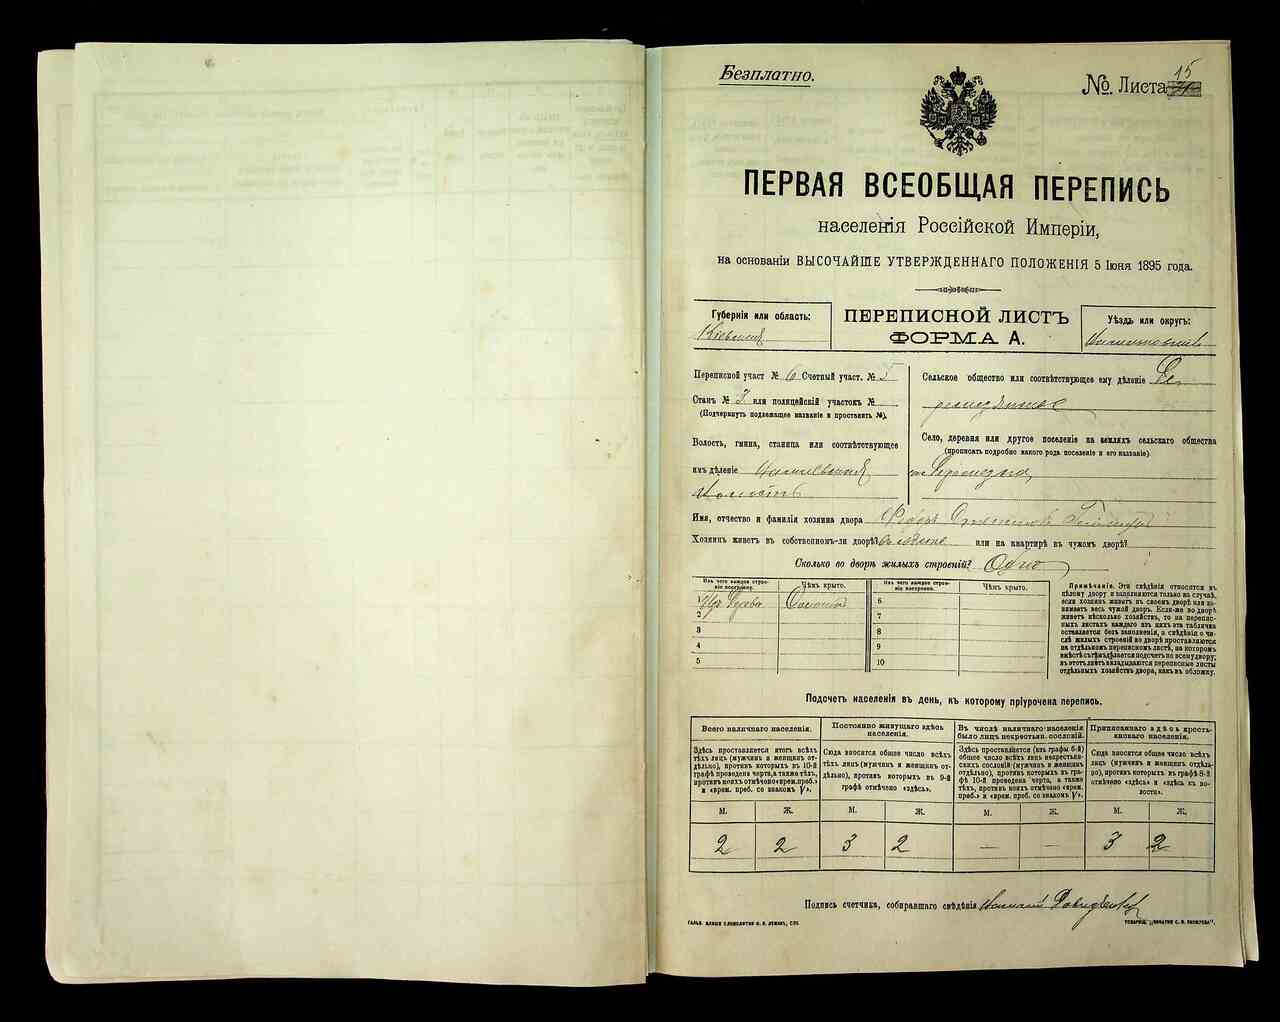 Безплатно.
№. Листа 15
ПЕРВАЯ ВСЕОБЩАЯ ПЕРЕПИСЬ
населенія Россійской Имперіи,
на основаніи ВЫСОЧАЙШЕ УТВЕРЖДЕННАГО ПОЛОЖЕНІЯ 5 Іюня 1895 года.
Губернія или область:
Кіевская
ПЕРЕПИСНОЙ ЛИСТЪ
ФОРМА А.
Уѣздъ или округъ:
Переписной участ № 6 Счетный участ. № 5
Станъ № 3 или полицейскій участокъ №
(Подчеркнуть подлежащее названіе и проставить №).
Сельское общество или соотвѣтствующее ему дѣленіе
Волость, гмина, станица или соотвѣтствующее
имъ дѣленіе
волость
Село, деревня или другое поселеніе на земляхъ сельскаго общества
(прописать подробно какого рода поселеніе и его названіе)
Имя, отчество и фамилія хозяина двора
Хозяинъ живетъ въ собственномъ-ли дворѣ? или на квартирѣ въ чужомъ дворѣ?
Сколько во дворѣ жилыхъ строеній? Одно
Изъ чего каждое строеніе построено.
Чѣмъ крыто.
Изъ чего каждое строеніе построено.
Чѣмъ крыто.
1 Изъ дерева Соломой
2
3
4
5
6
7
8
9
10
Примѣчаніе. Эти свѣдѣнія относятся къ
цѣлому двору и заполняются только въ случаѣ,
если хозяинъ живетъ въ своемъ дворѣ или занимаетъ
весь чужой дворъ. Если-же во дворѣ
живетъ нѣсколько хозяйствъ, то на переписныхъ
листахъ каждаго изъ нихъ эта табличка
оставляется безъ заполненія, а свѣдѣнія о числѣ
жилыхъ строеній во дворѣ проставляются
на отдѣльномъ переписномъ листѣ, на которомъ
вмѣстѣ съ тѣмъ дѣлается подсчетъ по всему двору;
въ этотъ листъ вкладываются переписные листы
отдѣльныхъ хозяйствъ двора, какъ въ обложку.
Подсчетъ населенія въ день, къ которому пріурочена перепись.
Всего наличнаго населенія.
Постоянно живущаго здѣсь населенія.
Въ числѣ наличнаго населенія было лицъ некрестьян. сословій.
Приписаннаго здѣсь крестьянскаго населенія.
Здѣсь проставляется итогъ всѣхъ
тѣхъ лицъ (мужчинъ и женщинъ отдѣльно),
противъ которыхъ въ 10-й
графѣ проведена черта, а также тѣхъ,
противъ коихъ отмѣчено «врем. преб.»
и «врем. преб. со знакомъ V».
Сюда вносится общее число всѣхъ
лицъ (мужчинъ и женщинъ отдѣльно),
противъ которыхъ въ 9-й
графѣ отмѣчено «здѣсь».
Здѣсь проставляется (изъ графы 6-й)
общее число всѣхъ лицъ некрестьянскихъ
сословій (мужчинъ и женщинъ
отдѣльно), противъ которыхъ въ графѣ
10-й проведена черта, а также
тѣхъ, противъ коихъ отмѣчено «врем.
преб.» и «врем. преб. со знакомъ V».
Сюда вносится общее число всѣхъ
лицъ (мужчинъ и женщинъ отдѣльно),
противъ которыхъ въ графѣ 8-й
отмѣчено «здѣсь» и «здѣсь къ волости».
М. Ж. М. Ж. М. Ж. М. Ж.
2 2 3 2 — — 3 2
Подпись счетчика, собиравшаго свѣдѣнія